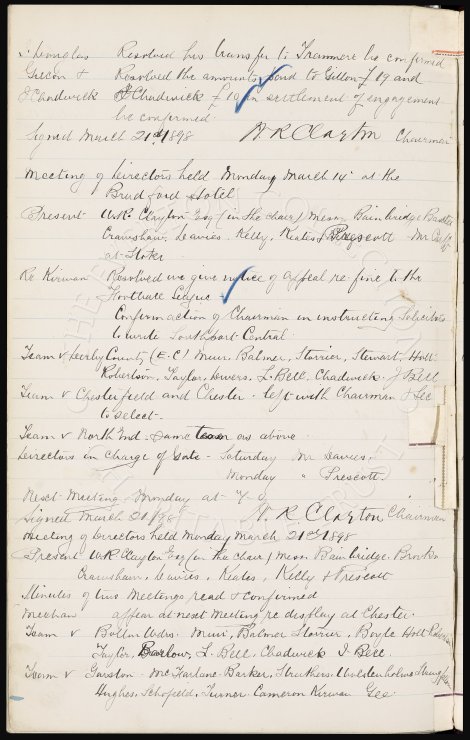 Douglas Resolved his transfer to Tranmere be confirmed
Gillon & Resolved the amounts paid to Gillon £19 and
J Chadwick J Chadwick £10 in settlement of engagement
be confirmed.
Signed March 21st 1898 W. R Clayton Chairman
Meeting of Directors held Monday March 14th at the
Bradford Hotel
Present W.R. Clayton Esq (in the chair) Messrs Bainbridge Baxter
Crawshaw, Davies, Kelly, Keates & Prescott - Mr
at Stoke
Re Kirwan Resolved we give notice of appeal re fine to the
League
Confirm action of Chairman in instructing Solicitors
to write Southport Central
Team v Derby County (E.C) Muir, Balmer, Storrier, Stewart, Holt
Robertson, Taylor, Divers, L. Bell, Chadwick, J Bell
Team v Chesterfield and Chester - left with Chairman & Sec
to select -
Team v North End - Same team as above
Directors in charge of Gate - Saturday Mr Davies.
Monday " Prescott.
Next Meeting Monday at 7/0
Signed March 21/98 W. R. Clayton Chairman
Meeting of Directors held Monday March 21st 1898
Present W.R Clayton Esq (in the chair) Messrs Bainbridge,
Crawshaw, Davies, Keates, Kelly & Prescott
Minutes of two Meetings read & confirmed
Meehan appear at next Meeting re display at Chester
Team v Bolton Wdrs. Muir, Balmer Storrier, Boyle Holt Robertson
Taylor, Barlow, L. Bell, Chadwick J. Bell
Team v Garston - McFarlane. Barker, Struthers. Wolstenholme
Hughes, Schofield, Turner Cameron Kirwan Gee